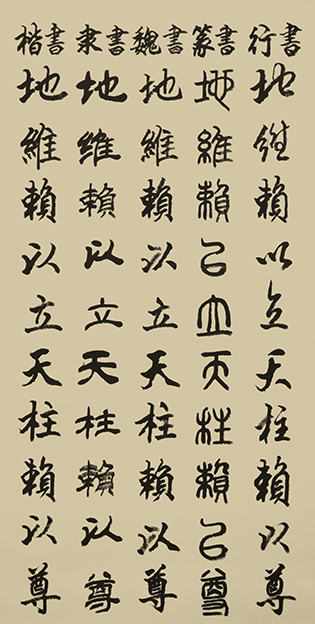 楷書 隶書 魏書 篆書 行書
地維賴以立天柱賴以尊
地維賴以立天柱賴以尊
地維賴以立天柱賴以尊
地維賴以立天柱賴以尊
地維賴以立天柱賴以尊